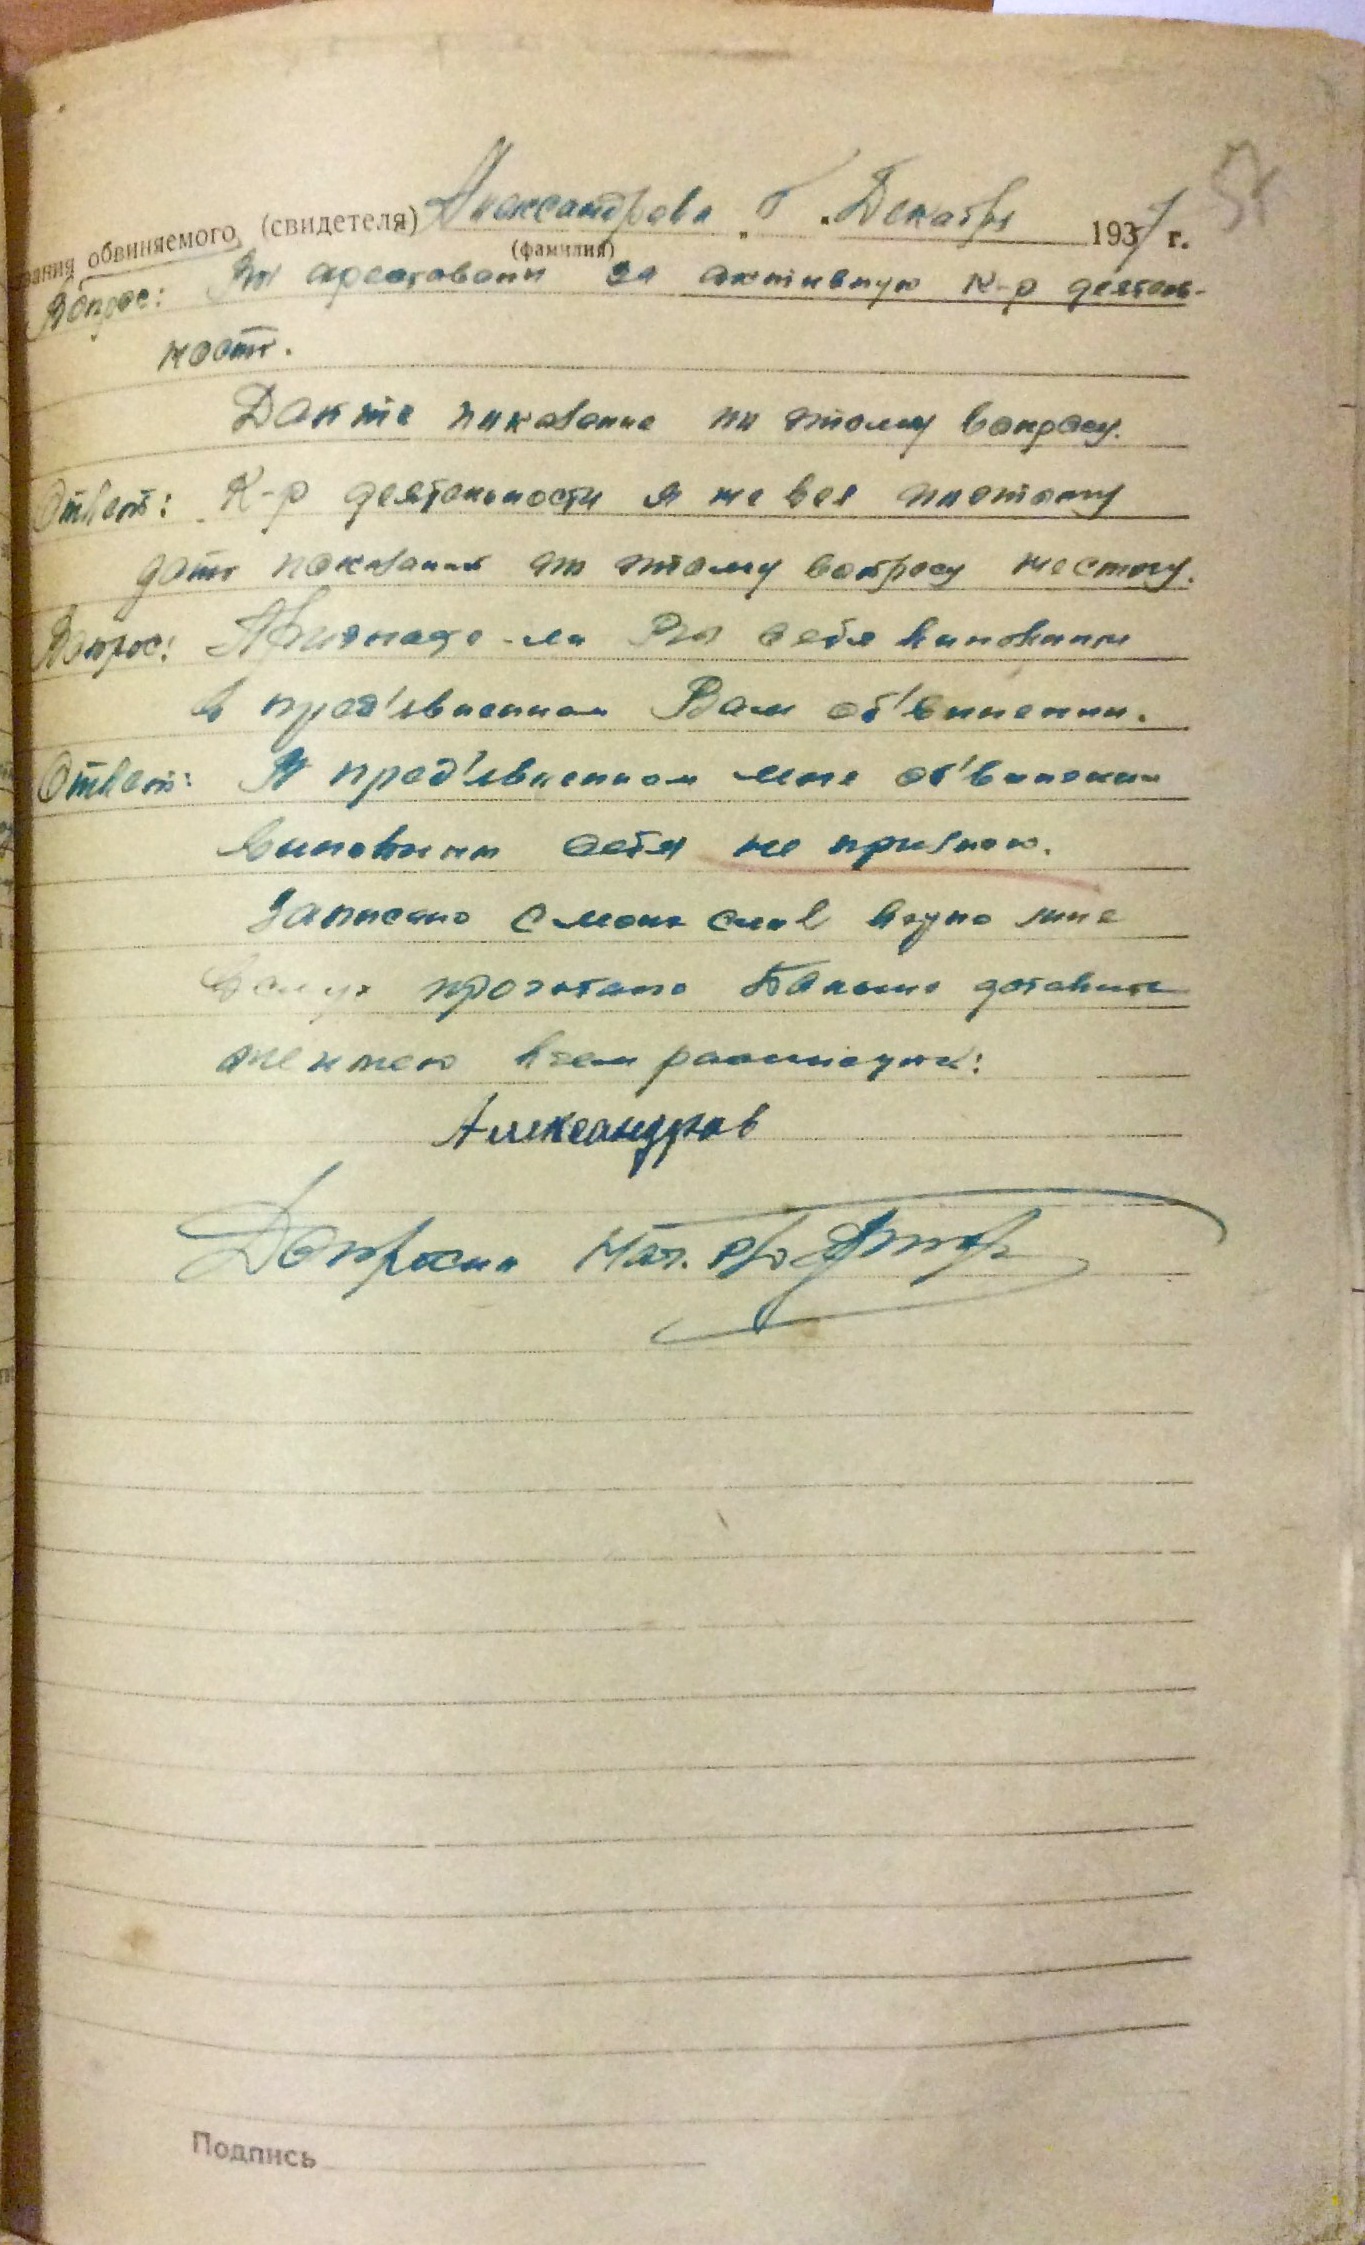 57
вания обвиняемого (свидетеля) Александрова " 6 " Декабря 1937 г.
(фамилия)
Вопрос: Вы арестованы за активную к-р деятель-
ность.
Дайте показание по этому вопросу.
Ответ: К-р деятельности я не вел поэтому
дать показания по этому вопросу не смогу.
Вопрос: Признаете-ли Вы себя виновным
в пред'явленном Вам об'винении.
Ответ: В пред'явленном мне об'винении
виновным себя не признаю.
Записано с моих слов верно мне
вслух прочитано Больше добавить
не имею в чем расписуюсь:
Александров
Допросил Нач.
Подпись